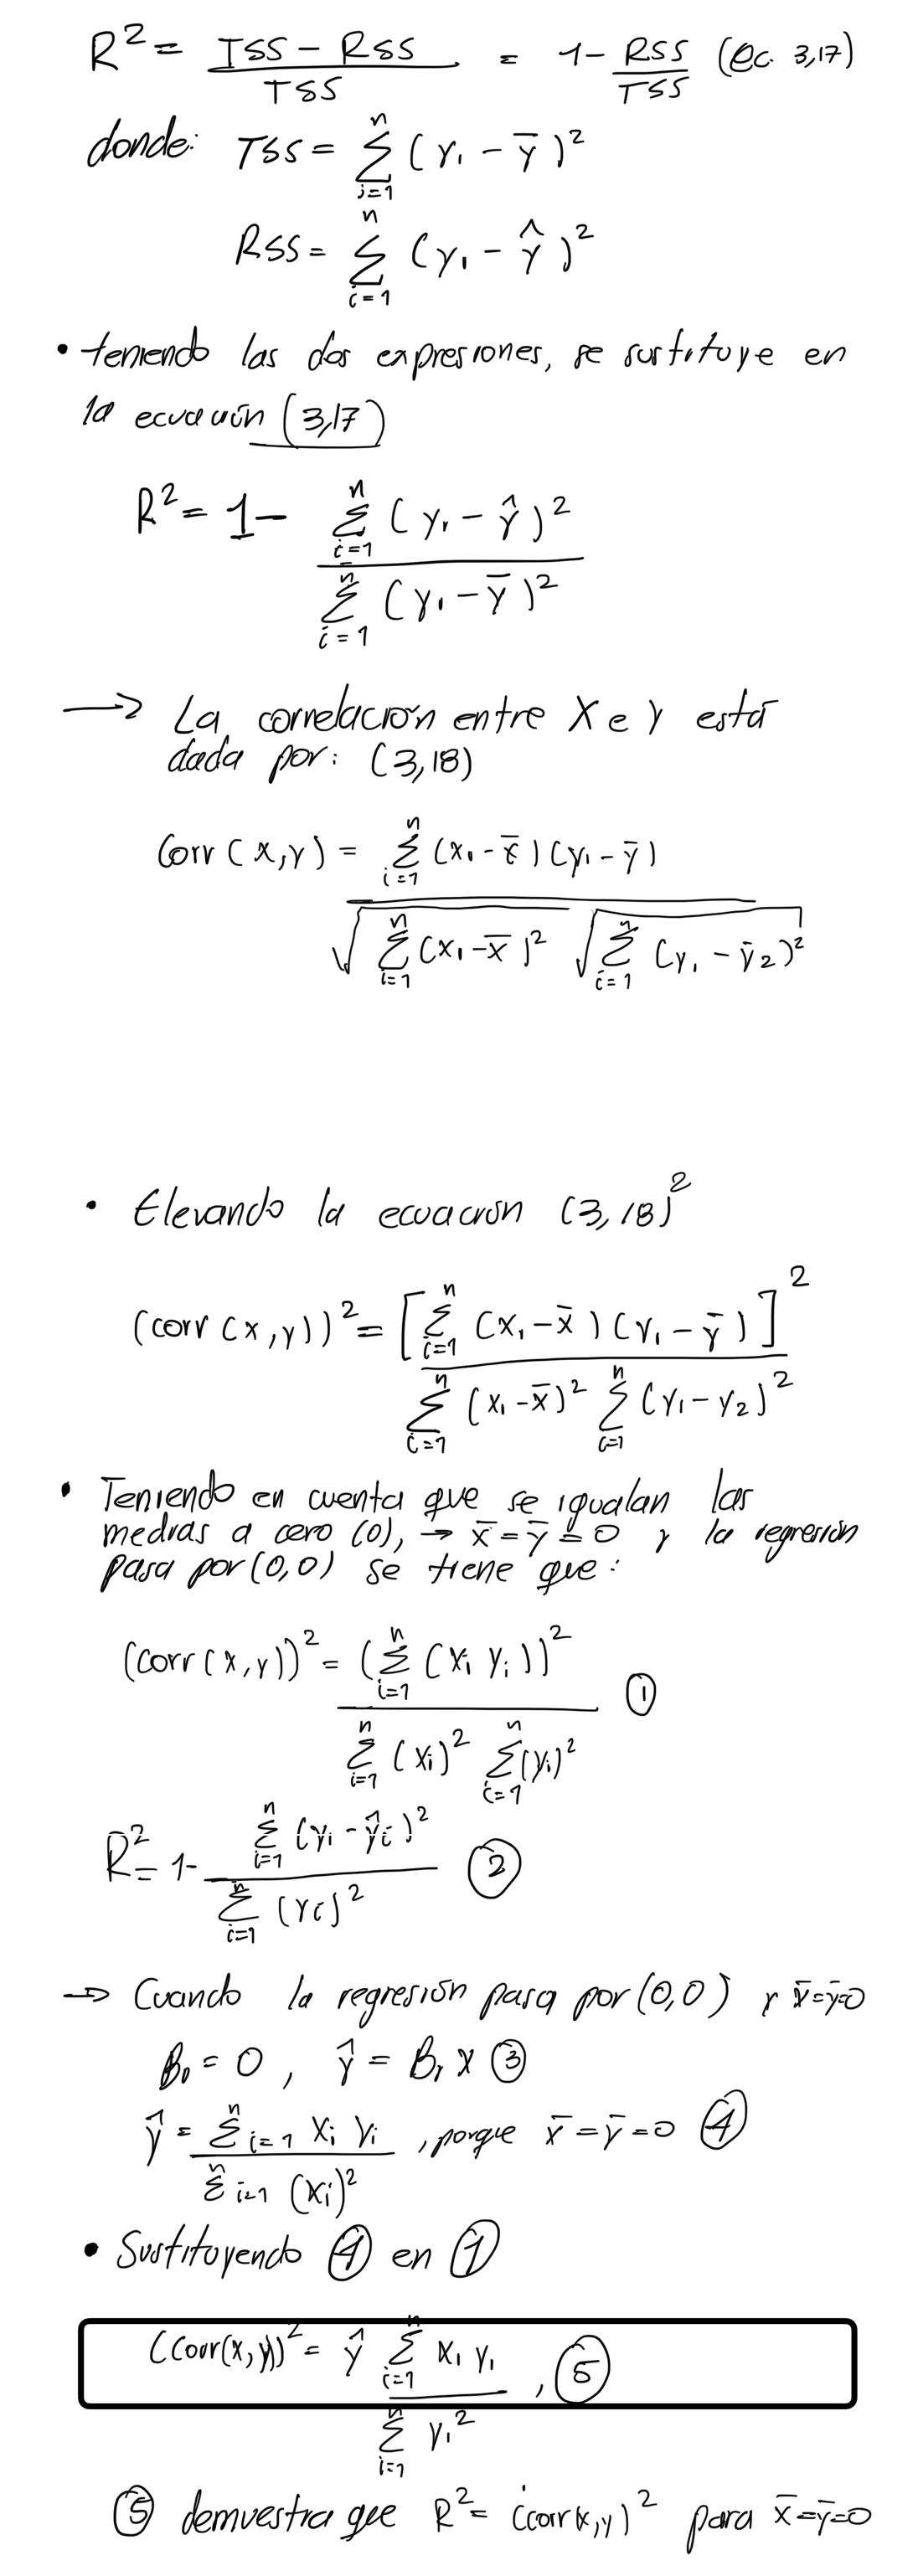 R² = (TSS − RSS) / TSS = 1 − RSS / TSS (Ec. 3,17)
donde: TSS = Σ_{i=1}^{n} (y₁ − ȳ)²
RSS = Σ_{i=1}^{n} (y₁ − ŷ)²
• teniendo las dos expresiones, se sustituye en
la ecuación (3,17)
R² = 1 − Σ_{i=1}^{n} (y₁ − ŷ)² / Σ_{i=1}^{n} (y₁ − ȳ)²
→ La correlación entre X e Y está
dada por: (3,18)
Corr (x,y) = Σ_{i=1}^{n} (x₁ − x̄)(y₁ − ȳ) / √(Σ_{i=1}^{n} (x₁ − x̄)²) √(Σ_{i=1}^{n} (y₁ − ȳ₂)²)
• Elevando la ecuación (3,18)²
(corr (x,y))² = [Σ_{i=1}^{n} (x₁ − x̄)(y₁ − ȳ)]² / Σ_{i=1}^{n} (x₁ − x̄)² Σ_{i=1}^{n} (y₁ − y₂)²
• Teniendo en cuenta que se igualan las
medias a cero (0), → x̄ = ȳ = 0 y la regresión
pasa por (0,0) se tiene que:
(corr (x,y))² = (Σ_{i=1}^{n} (xᵢ yᵢ))² / Σ_{i=1}^{n} (xᵢ)² Σ_{i=1}^{n} (yᵢ)² ①
R² = 1 − Σ_{i=1}^{n} (yᵢ − ŷᵢ)² / Σ_{i=1}^{n} (yᵢ)² ②
→ Cuando la regresión pasa por (0,0) y x̄=ȳ=0
B₀ = 0 , ŷ = B₁ x ③
ŷ = Σⁿ i=1 xᵢ yᵢ / Σⁿ i=1 (xᵢ)² , porque x̄ = ȳ = 0 ④
• Sustituyendo ④ en ①
(Corr(x,y))² = ŷ Σ_{i=1}^{n} x₁ y₁ / Σ_{i=1}^{n} y₁² , ⑤
⑤ demuestra que R² = (corr(x,y))² para x̄=ȳ=0